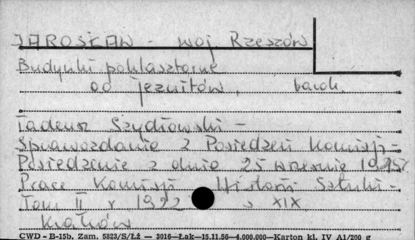 JAROSŁAW - woj Rzeszów
Budynki poklasztorne
od jezuitów, barok.
Tadeusz Szydłowski -
Sprawozdanie z Posiedzeń Komisji -
Posiedzenie z dnia 25 września 19
Prace Komisji Historii Sztuki -
Tom II r 1922 s XIX
Kraków
CWD - B-15b. Zam. 5823/S/Łź — 3016—Łak—15.11.56—4.000.000—Karton kl. IV A1/200 g